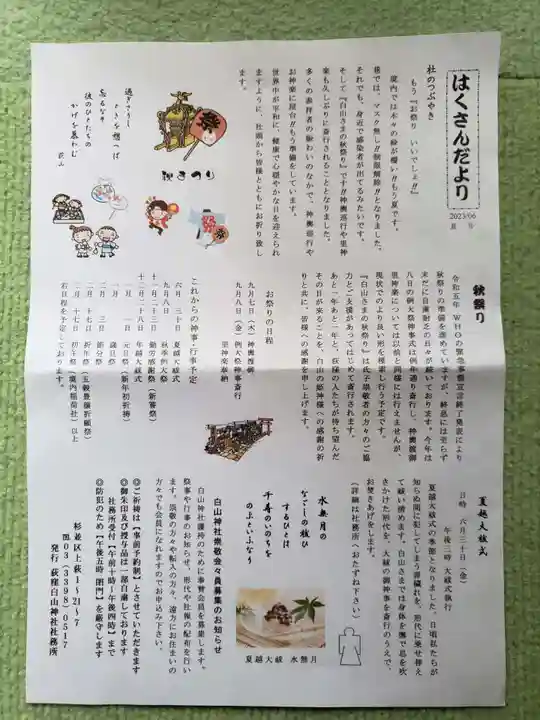 はくさんだより
2023/06
夏号
杜のつぶやき
もう『お祭り いいでしょ‼』
境内では木々の緑が耀い‼もう夏です。
巷では、マスク無し‼制限解除‼となりました。
それでも、身近で感染者が出てるみたいです。
そして『白山さまの秋祭り』です‼神輿巡行や里神
楽も久しぶりに斎行されることとなりました。
多くの参拝者の賑わいのなかで、神輿巡行や
お神楽に屋台‼もう準備をしています。
世界中が平和に、健康で心穏やかな日を迎えられ
ますように、社頭から皆様とともにお祈り致し
ます。
祭
秋まつり
過ぎさりし
ときを想へば
忘るなき
彼のひとたちの
かげを慕わむ
荻山
秋祭り
令和五年 WHOの緊急事態宣言終了発表により
秋祭りの準備を進めていますが、終息には至らず
未だに自粛耐乏の日々が続いております。今年は
八日の例大祭神事式は例年通り斎行し、神輿渡御
里神楽については以前と同様には行えませんが、
現状でのより良い形を模索し行う予定です。
『白山さまの秋祭り』は氏子崇敬者の方々のご協
力とご支援があってはじめて斎行されます。
あと一年あと一年と、荻窪の人たちが待ち望んだ
その日が来ることを、白山の姫神様への感謝の祈
りと共に、皆様への感謝を申し上げます。
お祭りの日程
九月七日(木)神輿渡御、
九月八日(金)例大祭神事斎行
里神楽奉納
これからの神事・行事予定
六月 三十日 夏越大祓式
九月八日 秋季例大祭
十一月二十三日 勤労感謝祭(新嘗祭)
十二月二十八日 年越大祓式
一月 一日 元旦祭(新年初祈祷)
一月 一日 歳旦祭
二月 三日 節分祭
二月 十七日 祈年祭(五穀豊穣祈願祭)
二月 十七日 初午祭(境内稲荷社)以上
右日程を予定しております。
夏越大祓式
日時 六月三十日(金)
午後三時 大祓式執行
夏越大祓式の季節となりました。日頃私たちが
知らぬ間に犯してしまう罪穢れを、形代に乗せ移え
て祓い清めます。白山さまでは身体を撫で息を吹
きかけた形代を、大祓の御神事を斎行のうえで、
お焚きあげをします。
(詳細は社務所へおたずね下さい)
水無月の
なごしの祓ひ
するひとは
千年のいのちを
のぶといふなり
夏越大祓 水無月
白山神社崇敬会々員募集のお知らせ
白山神社護持のために奉賛会員を募集します。
祭事や行事のお知らせ、形代や社報の配布を行い
ます。崇敬の方々や転入の方々、遠方にお住まいの
方々でも会員になれますのでお申込み下さい。
◎ご祈祷は【事前予約制】とさせていただきます
◎御朱印及び授与品は一部自粛しております
社務所受付【午前十時〜午後四時】まで
◎防犯のため【午後五時閉門】を厳守します
杉並区上荻1〜21〜7
☎03(3398)0517
発行 荻窪白山神社社務所